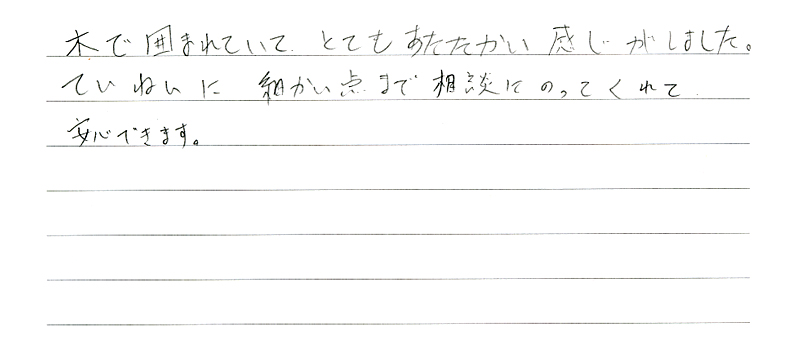 木で囲まれていて とてもあたたかい 感じがしました。
ていねいに 細かい点まで 相談にのってくれて
安心できます。